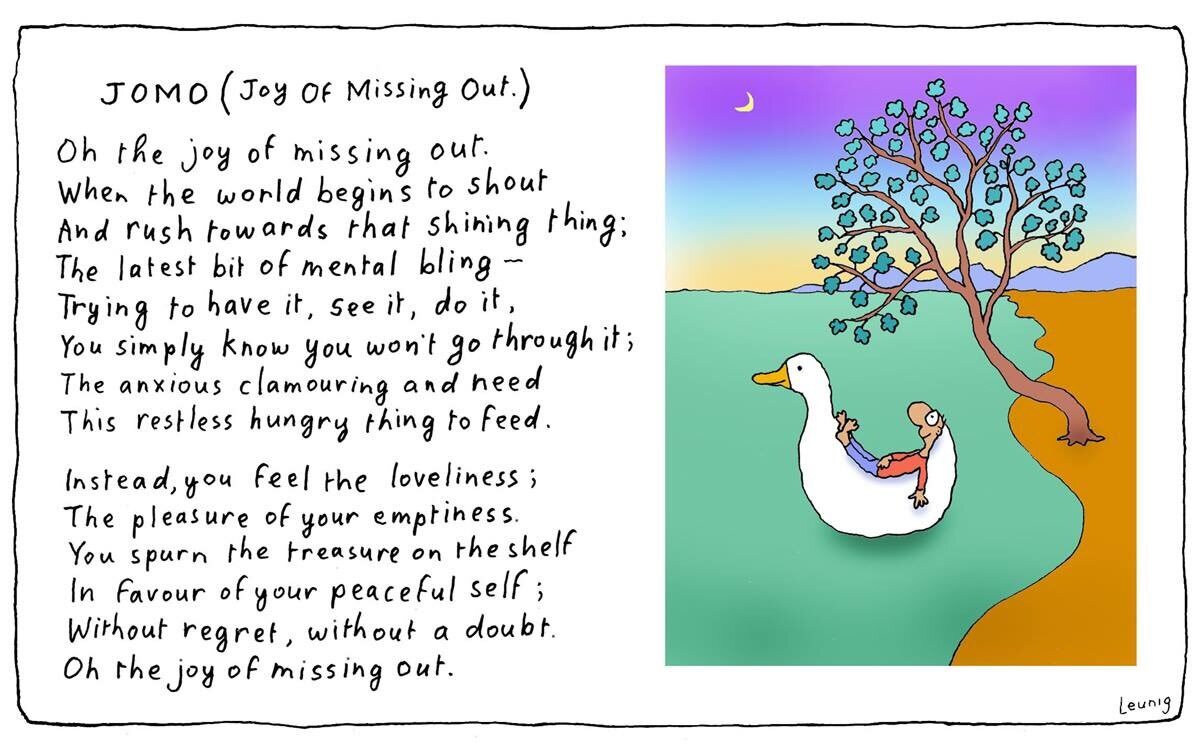 JOMO (Joy Of Missing Out.)
Oh the joy of missing out.
When the world begins to shout
And rush towards that shining thing;
The latest bit of mental bling –
Trying to have it, see it, do it,
You simply know you won't go through it;
The anxious clamouring and need
This restless hungry thing to feed.
Instead, you feel the loveliness;
The pleasure of your emptiness.
You spurn the treasure on the shelf
In favour of your peaceful self;
Without regret, without a doubt.
Oh the joy of missing out.
Leunig